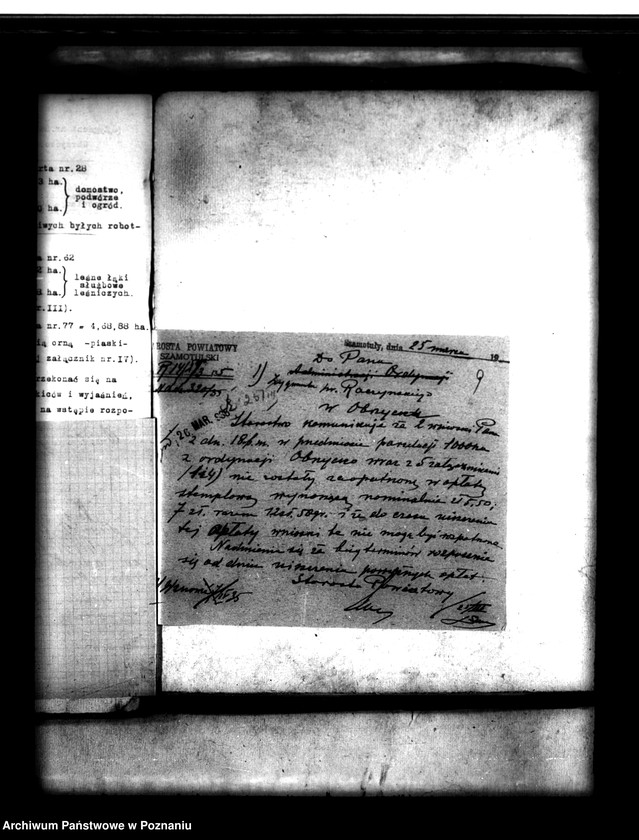 rta nr. 28
3 ha.
domostwo,
podwórze
i ogród.
ha.
iwych byłych robot-
a nr. 62
ha.
leśne łąki
służbowe
leśniczych.
ha.
r. III).
a nr. 77 = 4,68,88 ha.
ią orną -piaski-
j załącznik nr. IV).
rzekonać się na
kiców i wyjaśnień,
na wstępie rozpo-
ROSTA POWIATOWY
SZAMOTULSKI
Szamotuły, dnia 25 marca 19
9
1) Do Pana
Administracji Ordynacji
Zygmunta hr. Raczyńskiego
w Obrzycku
26. MAR.
Starostwo komunikuje że wniosek Pana
z dn. 18 b.m. w przedmiocie parcelacji 1000 ha
z ordynacji Obrzycko wraz z załącznikami
nie zostały zaopatrzone w opłatę
stemplową wynoszącą nominalnie zł 5.50,
7 zł. razem 12 zł. 50 gr. i że do czasu uiszczenia
tej opłaty wniosek ten nie mogą być rozpatrzone
Nadmienia się że bieg terminów rozpocznie
się od dnia uiszczenia powyższych opłat.
Starosta Powiatowy